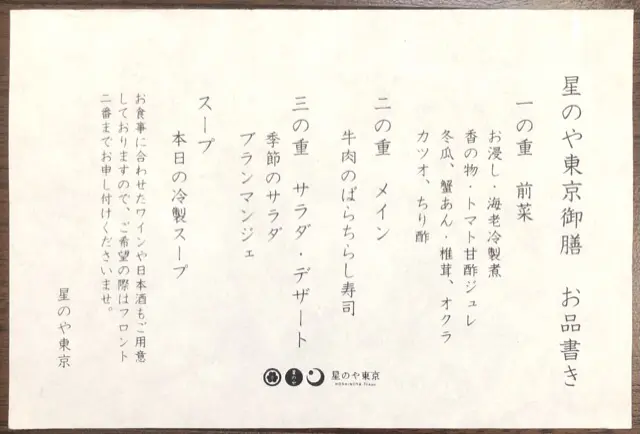 星のや東京御膳　お品書き
一の重　前菜
お浸し・海老冷製煮
香の物・トマト甘酢ジュレ
冬瓜、蟹あん・椎茸、オクラ
カツオ、ちり酢
二の重　メイン
牛肉のばらちらし寿司
三の重　サラダ・デザート
季節のサラダ
ブランマンジェ
スープ
本日の冷製スープ
お食事に合わせたワインや日本酒もご用意
しておりますので、ご希望の際はフロント
二番までお申し付けくださいませ。
星のや東京
星のや
星のや東京
HOSHINOYA Tokyo